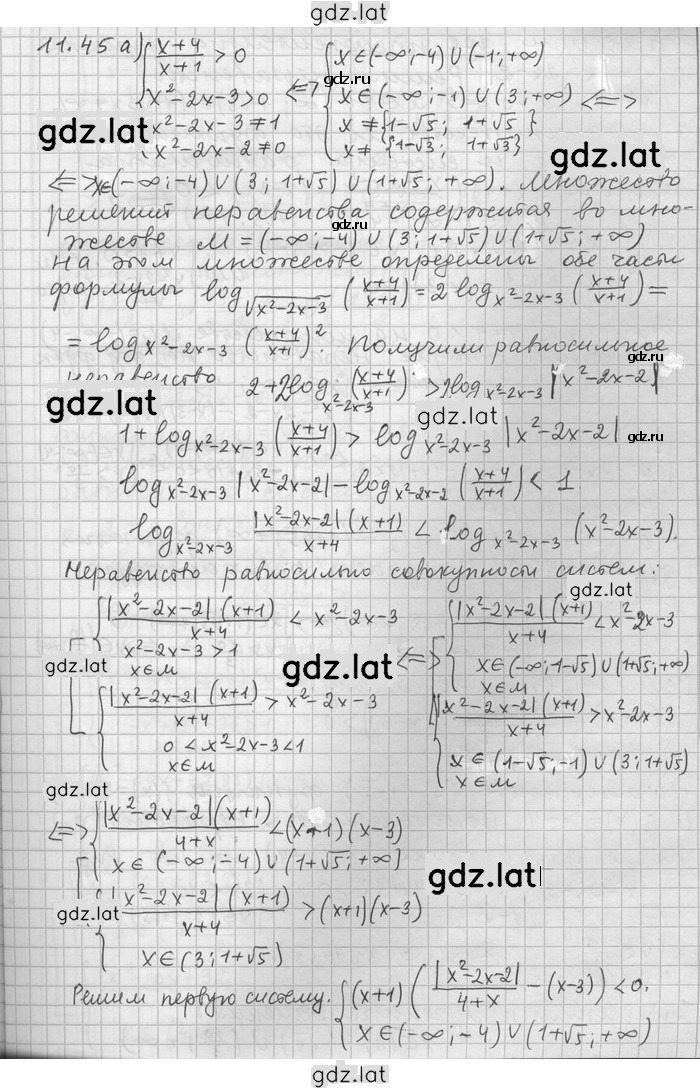 gdz.lat
11.45 а) { (x+4)/(x+1) > 0
x²-2x-3>0
x²-2x-3≠1
x²-2x-2≠0
⟺ { x∈(-∞;-4)∪(-1;+∞)
x∈(-∞;-1)∪(3;+∞) ⟺
x≠{1-√5; 1+√5}
x≠{1-√3; 1+√3}
gdz.lat
gdz.lat
⟺ x∈(-∞;-4)∪(3;1+√5)∪(1+√5;+∞). Множество
решений неравенства содержится во мно-
жестве M=(-∞;-4)∪(3;1+√5)∪(1+√5;+∞)
gdz.lat
На этом множестве определены обе части
формулы log_√(x²-2x-3) ((x+4)/(x+1)) = 2 log_x²-2x-3 ((x+4)/(x+1)) =
gdz.lat
= log_x²-2x-3 ((x+4)/(x+1))². Получили равносильное
gdz.lat
неравенство 2+2log_x²-2x-3 ((x+4)/(x+1)) > 2log_x²-2x-3 |x²-2x-2|
gdz.lat
gdz.lat
1+log_x²-2x-3 ((x+4)/(x+1)) > log_x²-2x-3 |x²-2x-2|
gdz.lat
log_x²-2x-3 |x²-2x-2| - log_x²-2x-2 ((x+4)/(x+1)) < 1
log_x²-2x-3 |x²-2x-2|(x+1)/(x+4) < log_x²-2x-3 (x²-2x-3).
Неравенство равносильно совокупности систем:
gdz.lat
[ { |x²-2x-2|(x+1)/(x+4) < x²-2x-3
x²-2x-3>1
x∈M
gdz.lat
gdz.lat
{ |x²-2x-2|(x+1)/(x+4) > x²-2x-3
0<x²-2x-3<1
x∈M
⟺ [ { |x²-2x-2|(x+1)/(x+4) < x²-2x-3
x∈(-∞;1-√5)∪(1+√5;+∞)
x∈M
{ |x²-2x-2|(x+1)/(x+4) > x²-2x-3
gdz.lat
x∈(1-√5;-1)∪(3;1+√5)
x∈M
⟺ [ { |x²-2x-2|(x+1)/(4+x) < (x+1)(x-3)
x∈(-∞;-4)∪(1+√5;+∞]
gdz.lat
gdz.lat
{ |x²-2x-2|(x+1)/(x+4) > (x+1)(x-3)
x∈(3;1+√5)
gdz.lat
Решим первую систему. { (x+1)(|x²-2x-2|/(4+x) - (x-3)) < 0.
x∈(-∞;-4)∪(1+√5;+∞)
gdz.lat